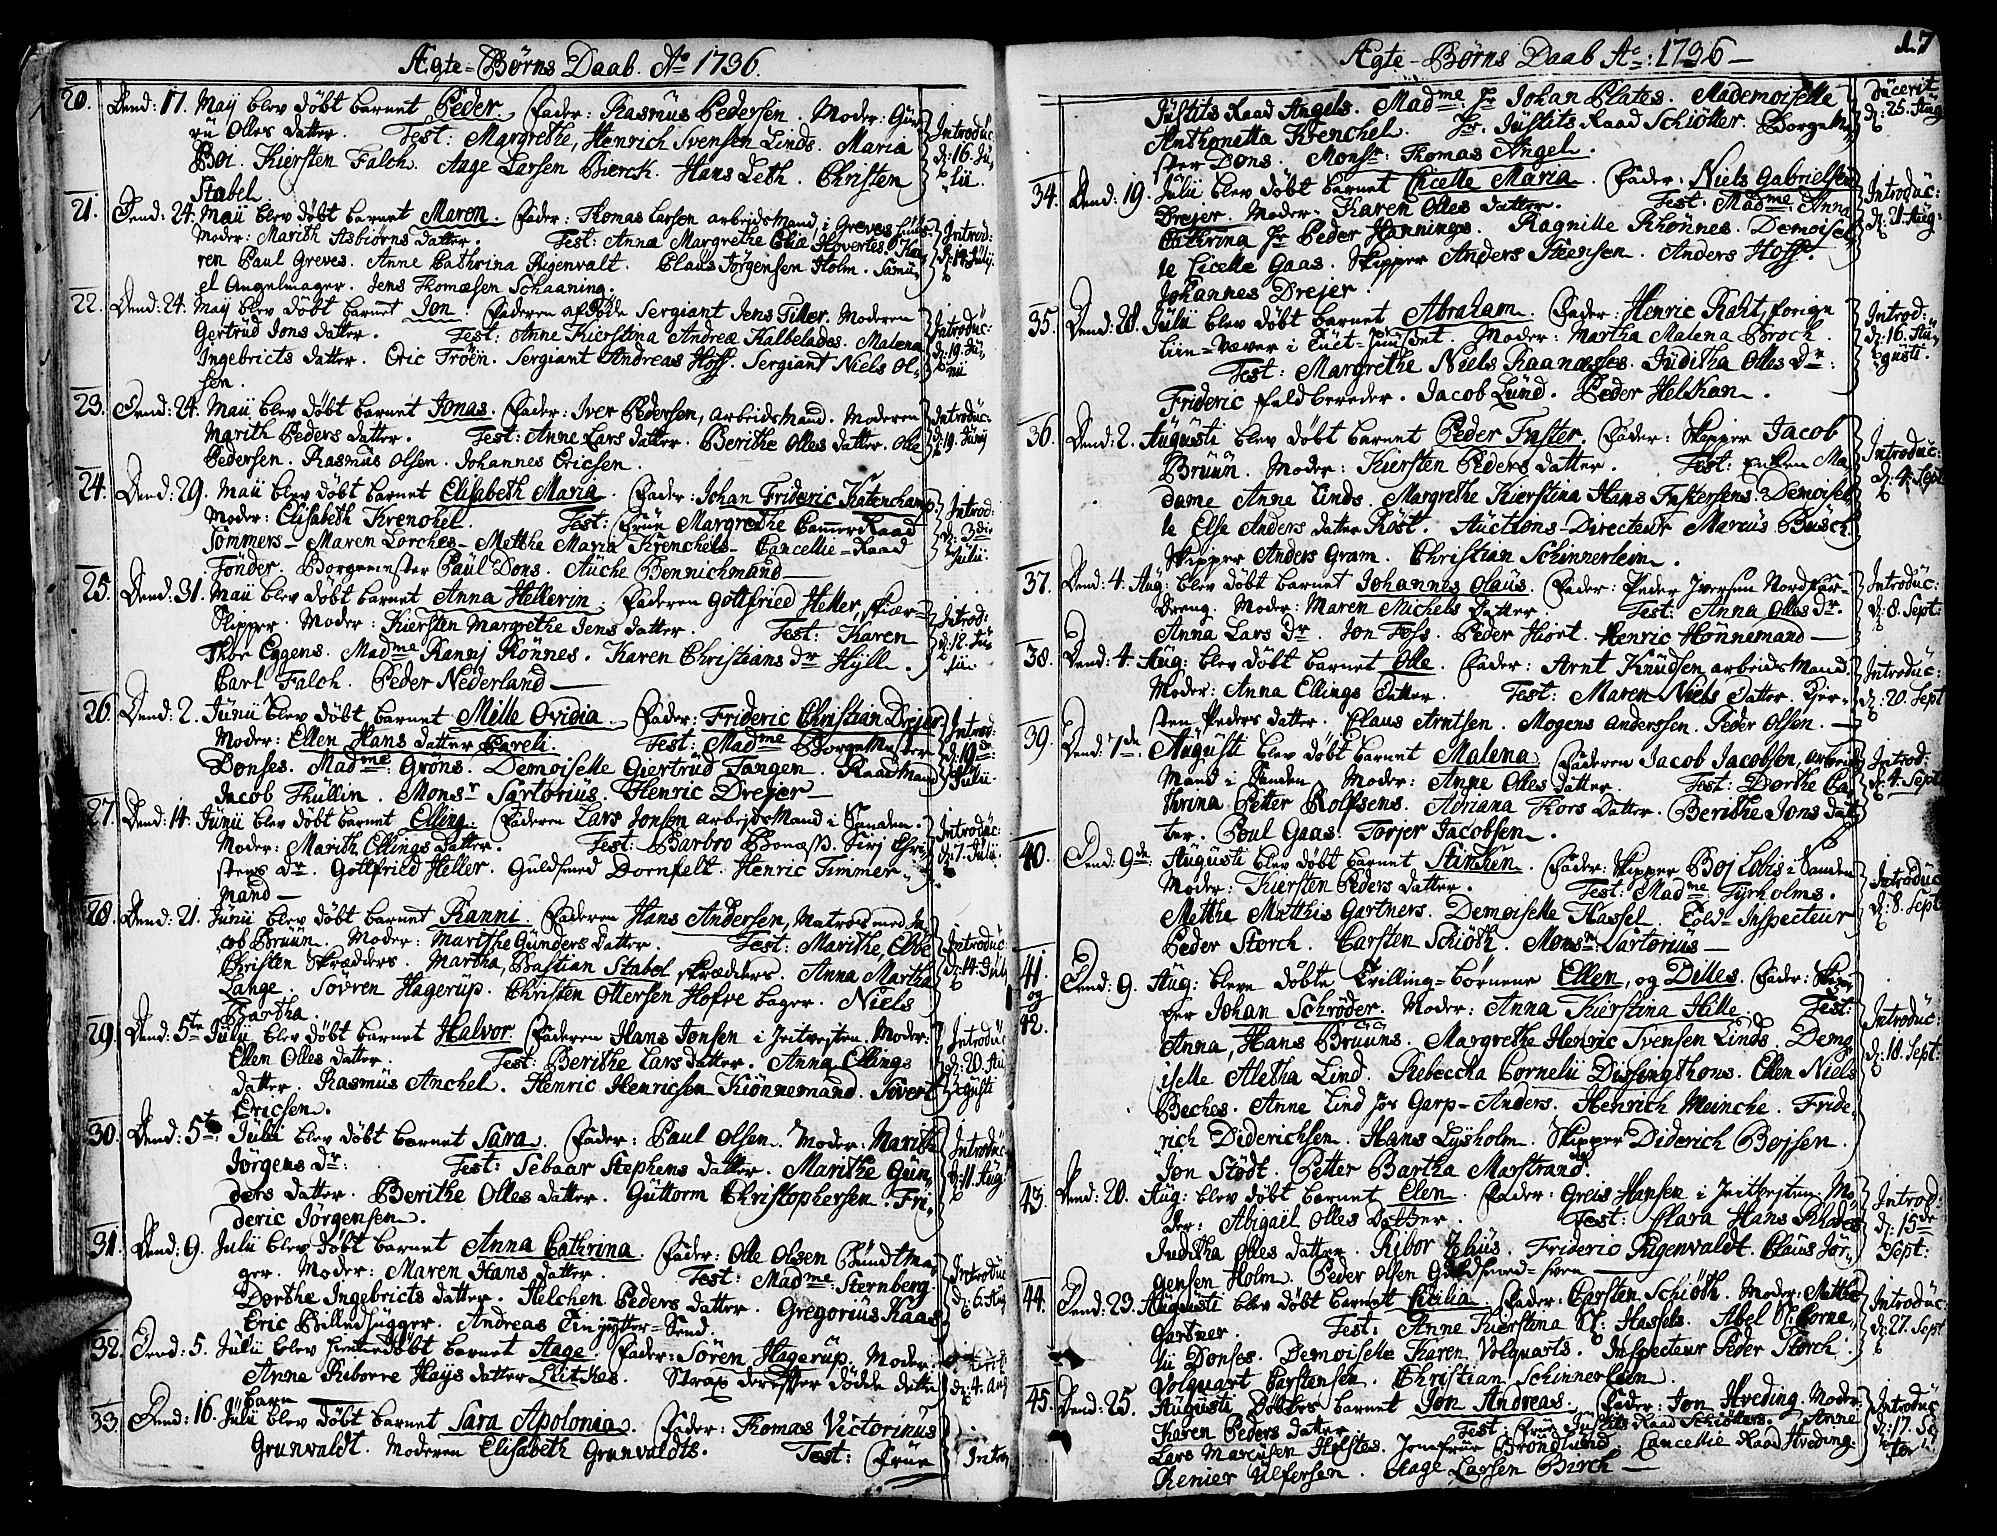 Ægte-Børns Daab. Aº 1736.
20. Dend: 17. Maij blev døbt barnet Peder. Fader: Rasmus Pedersen. Moder: Gu-
ru Olles datter. Test: Margrethe, Henrich Svensen Linds. Maria
Boi. Kiersten Falch. Aage Larsen Bierck. Hans Leth. Christen
Stabel.
Introduc:
d: 16. Ju-
lii.
21. Dend: 24. Maii blev døbt barnet Maren. Fader: Thomas Larsen arbeidsmand, i Greves
Moder: Marith Asbiørns datter. Test: Anna Margrethe Eliæ Hovertes. Ka-
ren Paul Greves. Anne Cathrina Rigenvalt. Claus Jörgensen Holm. Samu-
el Angelmager. Jens Thomæsen Schaaning.
Introd:
d: 14. Julij
22. Dend: 24. Maij blev døbt barnet Jon. Faderen afdøde Sergiant Jens Tiller. Moderen
Gertrud Jons datter. Test: Anne Kierstina Andreæ Kalbelades. Malena
Ingebricts datter. Eric Tröen. Sergiant Andreas Hoff. Sergiant Niels Ol-
sen.
Introduc:
d: 19. Ju-
nii
23. Dend: 24. Maii blev døbt barnet Jonas. Fader: Iver Pedersen, arbeidsmand. Moderen
Marith Peders datter. Test: Anne Lars datter. Berithe Olles datter. Olle
Pedersen. Rasmus Olsen. Johannes Ericsen.
Introduc:
d: 19. Junij
24. Dend: 29. Maii blev døbt barnet Elisabeth Maria. Fader: Johan Frideric Katenchamp
Moder: Elisabeth Krenckel. Test: Frue Margrethe CammerRaad
Sommers- Maren Lorches- Metthe Maria Krenchels- Cancellie-Raad
Tönder. Borgemester Paul Dons. Auche Bennichmand-
Introd:
d: 3die
Julii
25. Dend: 31. Maii blev døbt barnet Anna Hellerin. Faderen Gottfried Heller,
Skipper. Moder: Kiersten Margrethe Jens datter. Test: Karen
Thoe Eggens. Madme Ranni Rönnes. Karen Christians dr Hÿll.
Carl Falch. Peder Nederland-
Introd:
d: 12. Ju-
lii
26. Dend: 2. Junii blev døbt barnet Mille Ovidia. Fader: Frideric Christian Drejer.
Moder: Ellen Hans datter Careli. Test: Madme Borgemester
Donses. Madme: Gröns. Demoiselle Giertrud Tangen. Raadmand
Jacob Thullin. Monsr Sartorius. Henric Drejer-
Introd:
d: 19de
Julii
27. Dend: 14. Junii blev døbt barnet Elling. Faderen Lars Jonsen arbejdsmand i Sanden.
Moder: Marith Ellings datter. Test: Barbro Bonæss. Siri Chri-
stens dr. Gottfried Heller. Guldsmed Dornfelt. Henric Timmer-
mand-
Introduc
d: 7. Julii
28. Dend: 21. Junii blev døbt barnet Ranni. Faderen Hans Andersen, Matros med Ja-
cob Bruun. Moder: Marithe Gunders datter. Test: Marithe, Ebbe
Christen Skrædders. Martha, Bastian Stabel skrædders. Anna Martha
Lange. Søvren Hagerup. Christen Ottersen Hofre bager. Niels
Bartha.
Introduc
d: 14. Julii
29. Dend: 5te Julii blev døbt barnet Halvor. Faderen Hans Jonsen i Jeitvejten. Moder:
Ellen Olles datter. Test: Berithe Lars datter. Anna Ellings
datter. Rasmus Anchel. Henric Henricsen Kiönnemand. Sivert
Ericsen.
Introduc
d: 20. Au-
gusti
30. Dend: 5te Julii blev døbt barnet Sara. Fader: Paul Olsen. Moder: Marithe
Jörgens dr: Test: Sebaar Stephens datter. Marithe Gun-
ders datter. Berithe Olles datter. Guttorm Christophersen. Fri-
deric Jörgensen.
Introduc
d: 11. Aug:
31. Dend: 9. Julii blev døbt barnet Anna Cathrina. Fader: Olle Olsen Bundtma-
ger. Moder: Maren Hans datter. Test: Madme: Sternberg
Dorthe Ingebricts datter. Helchen Peders datter. Gregorius Kaas
Eric Billedhugger. Andreas
Introduc
d: 6. Aug
32. Dend: 5. Julii blev hiemmedøbt barnet Aage. Fader: Sören Hagerup. Moder:
Anne Riborre Hays datter Klitkas. Strax derefter døde dette
barn
d: 4. Aug
33. Dend: 16. Julii blev døbt barnet Sara Apolonia. Fader: Thomas Victorinus
Grunvaldt. Moderen Elisabeth Grunvaldts. Test: Frue
Intro
Ægte-Børns Daab Aº: 1736-
17
Justits Raad Angels. Madme: Sr Johan Plates. Mademoiselle
Anthonetta Krenchel. Hr: Justits Raad Schiötter. Borgeme-
ster Dons. Monsr: Thomas Angel.
ducerit
d: 25. Aug
34. Dend: 19. Julii blev døbt barnet Cicelle Maria. Fader: Niels Gabrielsen
Drejer. Moder: Karen Olles datter. Test: Madme: Anna
Cathrina Sr Peder Hannings. Ragnille Rhönnes. Demoisel-
le Cicelle Gaas. Skipper Anders Steensen. Anders Hoff.
Johannes Drejer.
Introduc:
d: 21. Aug:
35. Dend: 28. Julii blev døbt barnet Abraham. Fader: Henric Raht, forign
Lin-Væver i Tuct-huuset. Moder: Martha Malena Broch.
Test: Margrethe Niels Raanæsses. Juditha Olles dr:
Frideric Feldbereder. Jacob Lund. Peder Helkan.
Introd:
d: 16. Au-
gusti.
36. Dend: 2. Augusti blev døbt barnet Peder Fuster. Fader: Skipper Jacob
Bruun. Moder: Kiersten Peders datter. Test: Enken Ma-
dame Anne Linds. Margrethe Kierstina Hans Fustersens. Demoisel-
le Else Anders datter Röst. Auctions-Directeur Marcus Busch
Skipper Anders Gram. Christian Schinnerlein.
Introduc:
d: 4. Sept
37. Dend: 4. Aug: blev døbt barnet Johannes Olaus. Fader: Peder Iversen Nordfar-
Dreng. Moder: Maren Michels datter. Test: Anna Olles dr
Anna Lars dr. Jon Foss. Peder Hiort. Henric Hönnemand-
Introduc:
d: 8. Sept:
38. Dend: 4. Aug: blev døbt barnet Olle. Fader: Arnt Knudsen arbeidsmand
Moder: Anna Ellings datter. Test: Maren Niels datter. Kier-
sten Peders datter. Claus Arntsen. Mogens Anderssen. Peder Olsen.-
Introduc:
d: 20. Sept
39. Dend: 7de Augusti blev døbt barnet Malena. Faderen Jacob Jacobsen, arbeids-
mand i Sanden. Moder: Anne Olles datter. Test: Dorthe Ca-
thrina Petter Rolfsens. Adriana Thors datter. Berithe Jons dat-
ter. Poul Gaas. Torjer Jacobsen.
Introd:
d: 4. Sept
40. Dend: 9de: Augusti blev døbt barnet Stinchen. Fader: Skipper Boj Lobis i Sanden
Moder: Kiersten Peders datter. Test: Madme Tyrholms.
Metthe Matthis Gartners. Demoiselle Hassel. Told-Inspecteur
Peder Storch. Carsten Schiöth. Monsr Sartorius-
Introduc
d: 8. Sept
41.
og
42. Dend: 9. Aug: bleve døbte Tvilling-børnene Ellen, og Dilles. Fader: Skip-
per Johan Schröder. Moder: Anna Kierstina Hille. Test:
Anna, Hans Bruuns. Margrethe Henric Svensen Linds. Demo-
iselle Aletha Lind. Rebeccha Cornelii Dissingthons. Ellen Niels
Beches. Anne Lind Jos Garp- Anders. Henrich Meincke. Fride-
rich Diderichsen. Hans Lysholm. Skipper Diderich Bojsen.
Jon Stödt. Petter Bartha Marstrand.
Introduc:
d: 18. Sept:
43. Dend: 20. Aug: blev døbt barnet Elen. Fader: Greis Hansen i Jeitvejten. Mo-
der: Abigaël Olles datter. Test: Clara Hans Rhodes
Juditha Olles datter. Ribor Zelius. Frideric Rigenvaldt. Claus Jör-
gensen Holm. Peder Olsen Guldsmed-svend
Introd:
d: 15de
Sept:
44. Dend: 23. Augusti blev døbt barnet Cicilia. Fader: Carsten Schiöth. Moder: Metthe
Gartner. Test: Anne Kierstina Sl: Hassels. Abel Sl: Corne-
lii Donses. Demoiselle Karen Volquarts. Inspecteur Peder Storch.
Volquart Carstensen. Christian Schinnerlein.
Introduc:
d: 27. Sept
45. Dend: 25. Augusti Døbtes barnet Jon Andreas. Fader: Jon Hveding. Moder:
Karen Peders datter. Test: Frue Justits Raad Schiötters. Anne
Lars Marcusen Holstes. Jomfrue Brondlund. Cancellie Raad Hveding.
Renier Ulfersen. Aage Larsen Birch-
Introduc
d: 17. Se